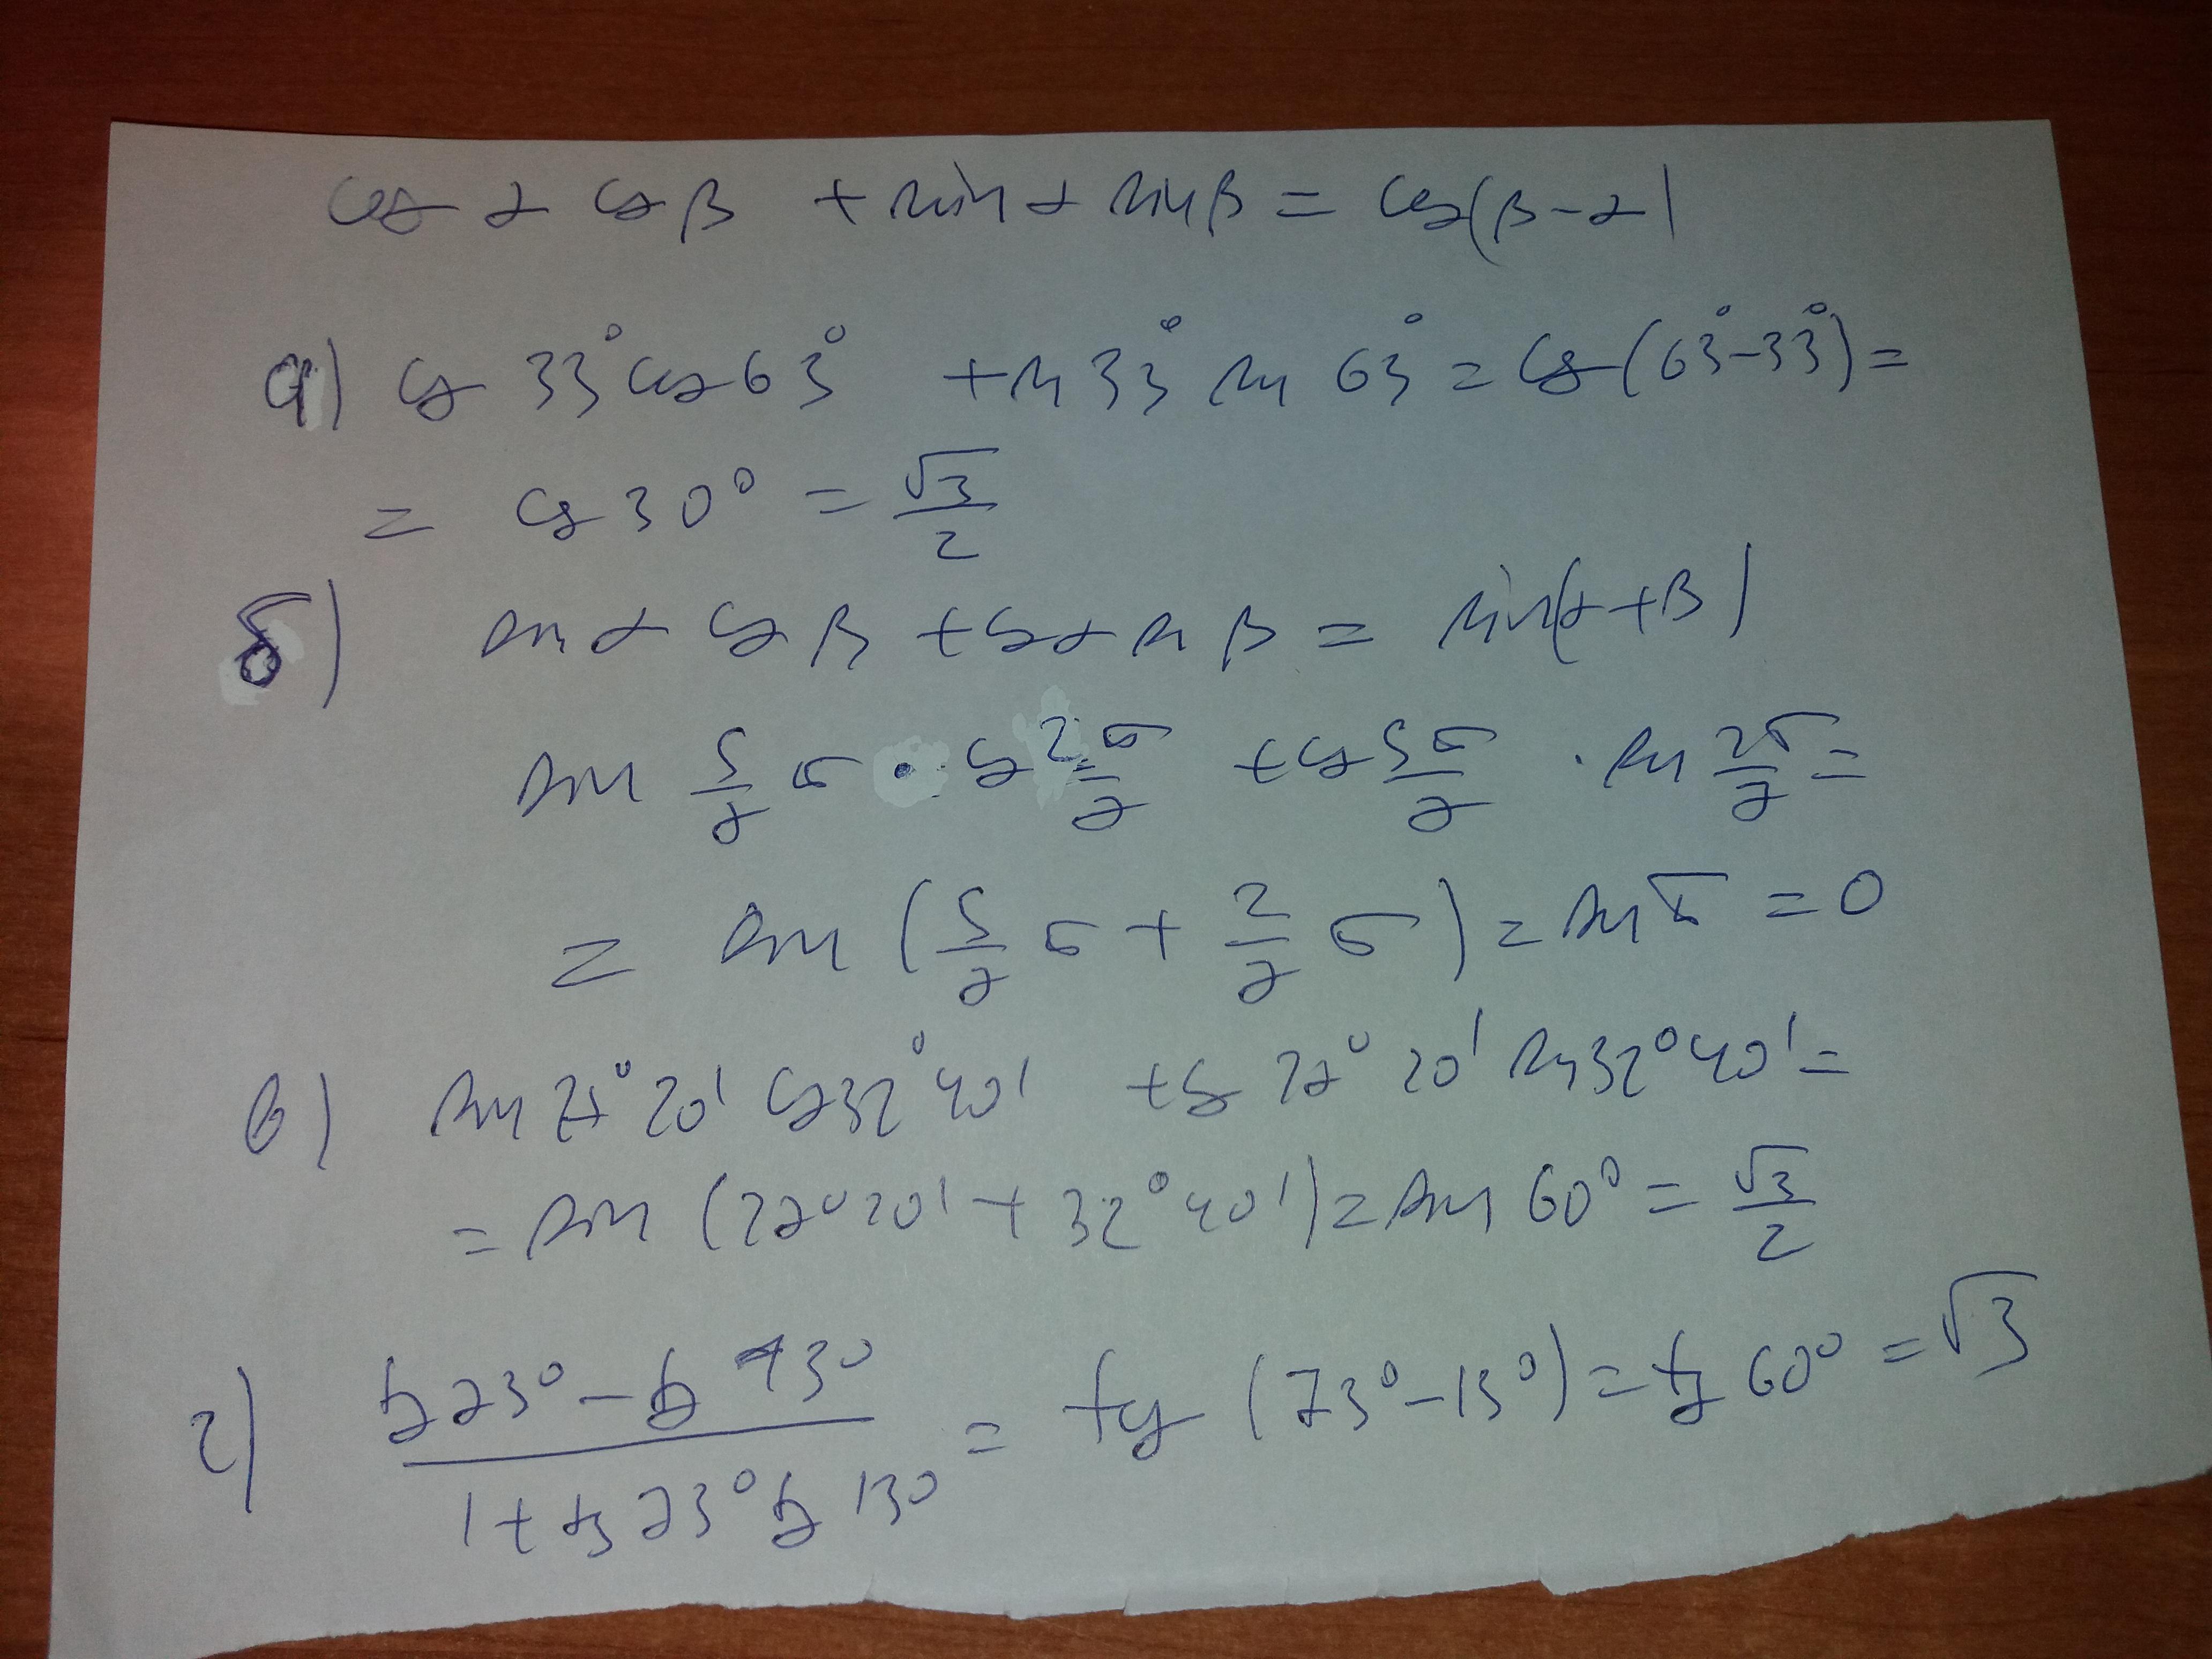 cos α cos β + sin α sin β = cos(β-α)
а) cos 33° cos 63° + sin 33° sin 63° = cos (63°-33°) =
= cos 30° = √3/2
б) sin α cos β + cos α sin β = sin(α+β)
sin 5/7 π · cos 2π/7 + cos 5π/7 · sin 2π/7 =
= sin (5/7 π + 2/7 π) = sin π = 0
в) sin 27° 20' cos 32° 40' + cos 27° 20' sin 32° 40' =
= sin (27° 20' + 32° 40') = sin 60° = √3/2
г) (tg 73° - tg 13°)/(1 + tg 73° tg 13°) = tg (73° - 13°) = tg 60° = √3